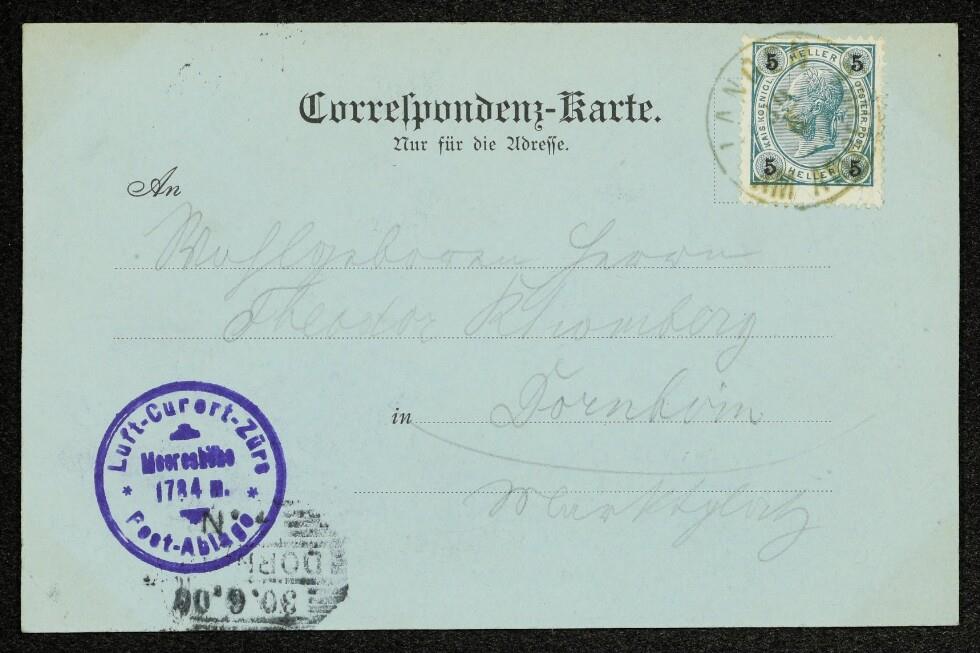 Correspondenz-Karte.
Nur für die Adresse.
An
5 HELLER 5
KAIS. KOENIGL. OESTERR. POST
5 HELLER 5
Wohlgeboren Herrn
Theodor
in Dornbirn
Marktplatz
Luft-Curort-Zürs
Meereshöhe
1784 m.
Post-Ablage
DOR
30.6.00